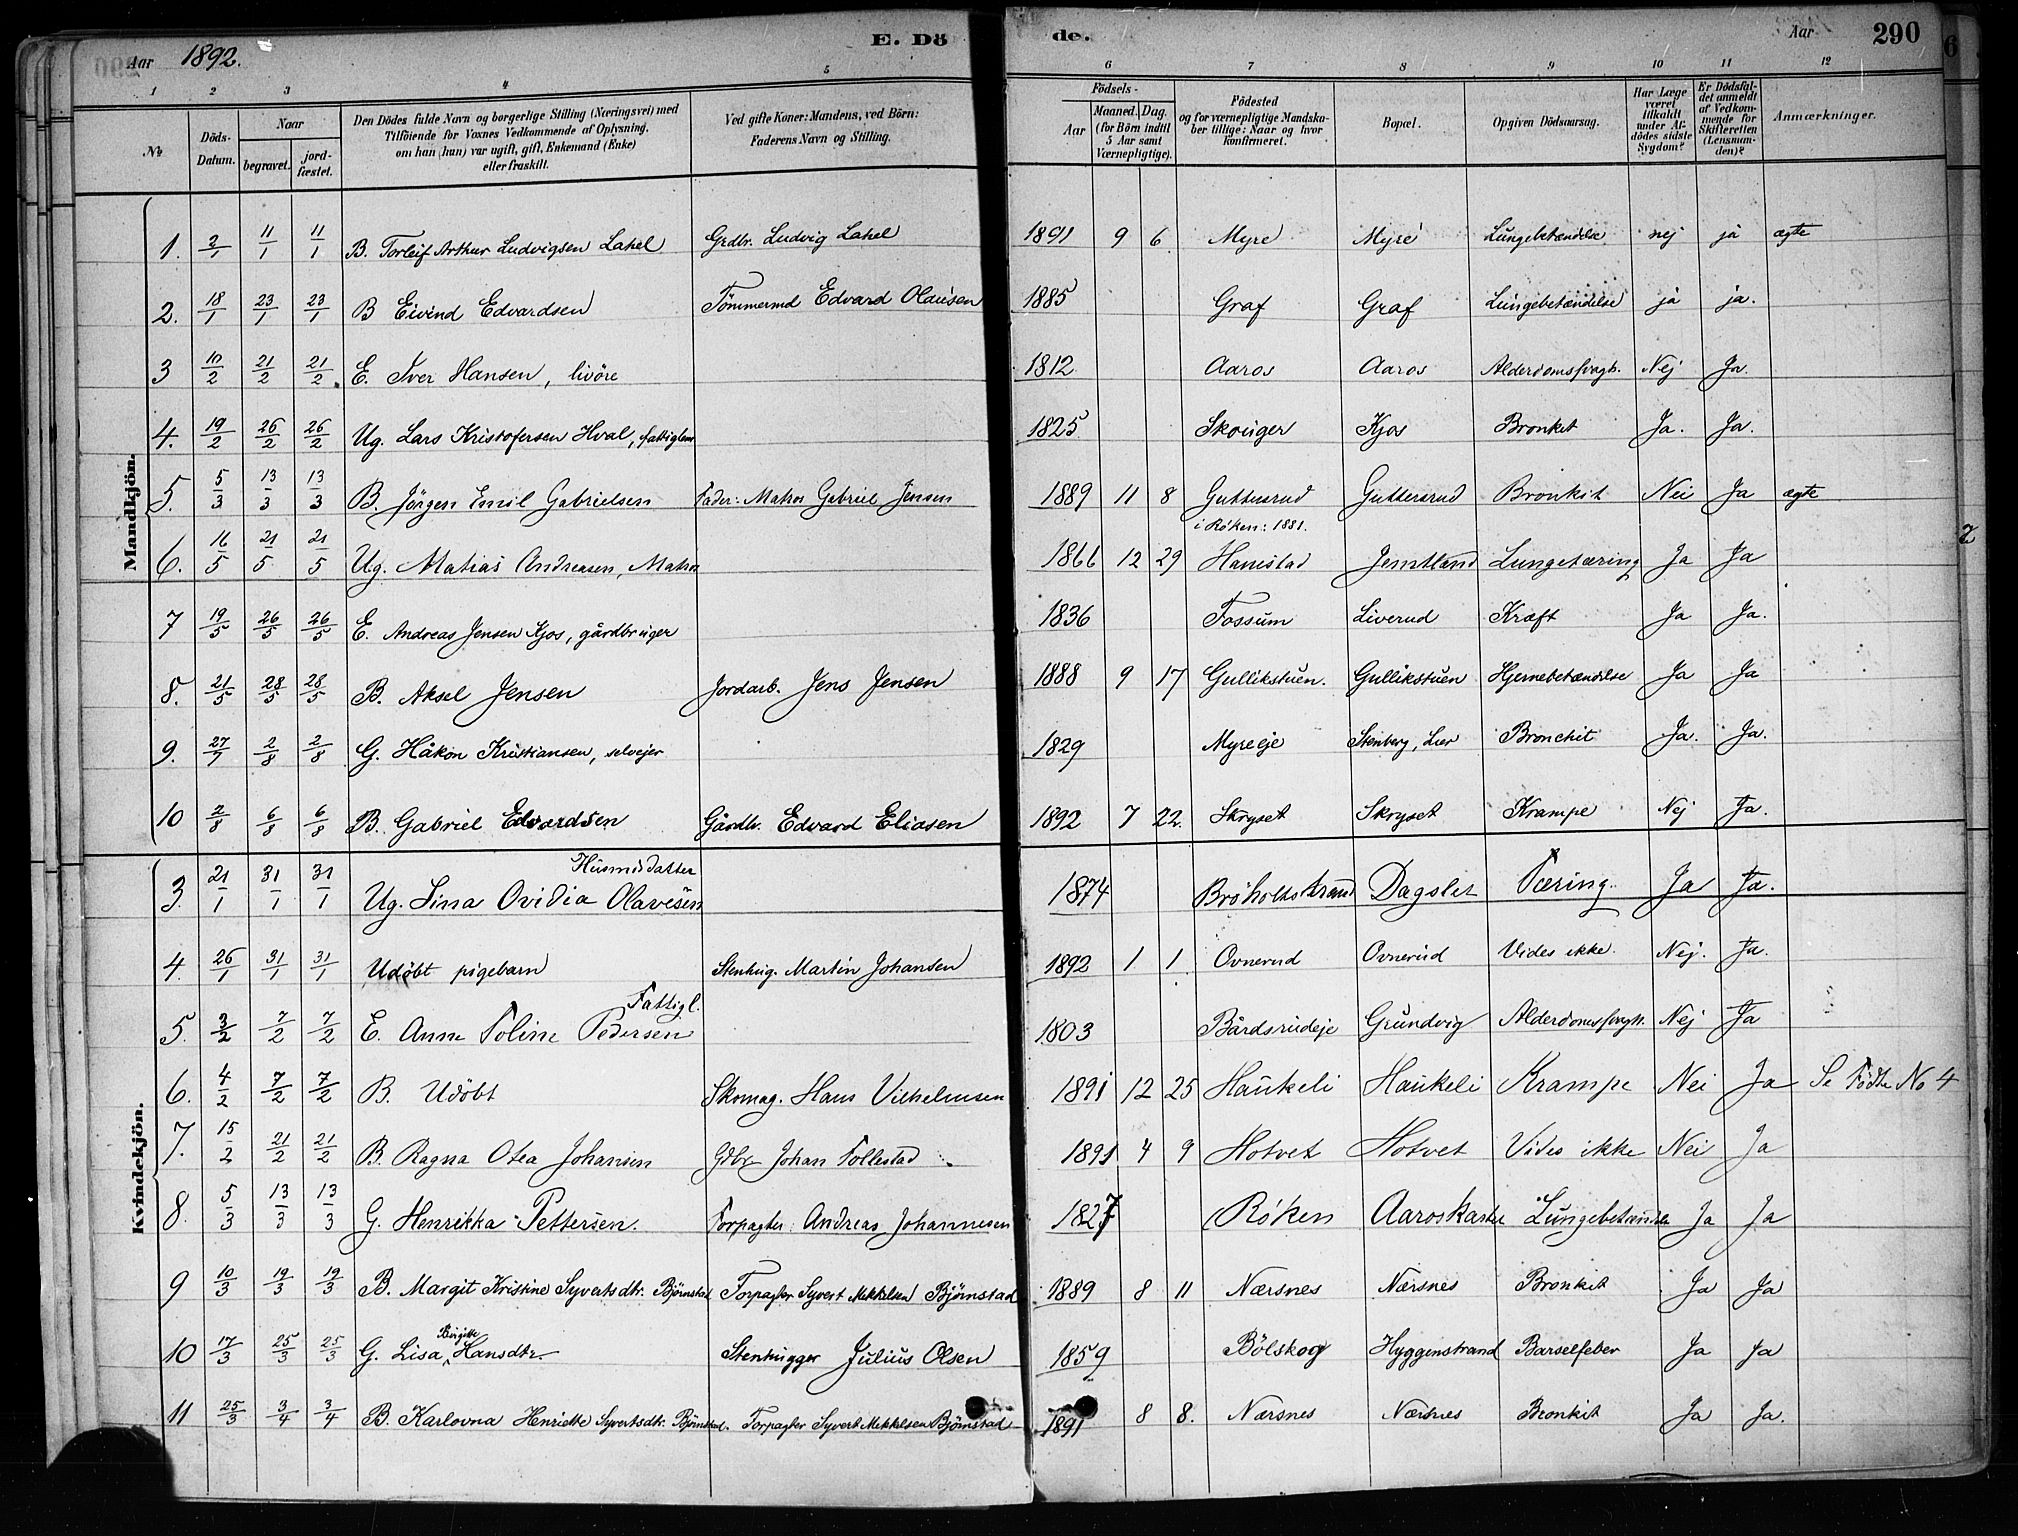 Aar 1892. E. Dö de. Aar 290
1 2 3 4 5 6 7 8 9 10 11 12
No
Döds-Datum.
Naar
begravet.
jord-fæstet.
Den Dödes fulde Navn og borgerlige Stilling (Næringsvei) med
Tilföiende for Voxnes Vedkommende af Oplysning,
om han (hun) var ugift, gift, Enkemand (Enke)
eller fraskilt.
Ved gifte Koner: Mandens, ved Börn:
Faderens Navn og Stilling.
Födsels-
Aar
Maaned. Dag.
(for Börn indtil
5 Aar samt
Værnepligtige).
Födested
og for værnepligtige Mandska-
ber tillige: Naar og hvor
konfirmeret.
Bopæl.
Opgiven Dödsaarsag.
Har Læge
været
tilkaldt
under Af-
dödes sidste
Sygdom?
Er Dödsfal-
det anmeldt
af Vedkom-
mende for
Skifteretten
(Lensman-
den)?
Anmærkninger.
Mandkjön.
1. 3/1 11/1 11/1 B. Torleif Arthur Ludvigsen Lahel Grdbr. Ludvig Lahel 1891 9 6 Myre Myre Lungebetændelse nej ja ægte
2. 18/1 23/1 23/1 B Eivind Edvardsen Tömmermd Edvard Olausen 1885 Graf Graf Lungebetændelse ja ja.
3 10/2 21/2 21/2 E. Iver Hansen, livöre 1812 Aaros Aaros Alderdomssvagh. Nej Ja.
4. 19/2 26/2 26/2 Ug. Lars Kristofersen Hval, fattiglem 1825 Skouger Kjos Bronkit Ja. Ja.
5. 5/3 13/3 13/3 B. Jörgen Emil Gabrielsen Fader: Matros Gabriel Jensen 1889 11 8 Guttersrud Guttersrud Bronkit Nei Ja ægte
i Röken: 1881.
6. 16/5 21/5 21/5 Ug. Matias Andreasen, Matros 1866 12 29 Hanestad Jemtland Lungetæring Ja Ja
7 19/5 26/5 26/5 E. Andreas Jensen Kjos, gårdbruger 1836 Fossum Liverud Kræft Ja Ja.
8. 21/5 28/5 28/5 B. Aksel Jensen Jordarb. Jens Jensen 1888 9 17 Gullikstuen. Gullikstuen Hjernebetændelse Ja Ja
9. 27/7 2/8 2/8 G. Håkon Kristiansen, selvejer 1829 Myreeje Stenberg, Lier Bronchit Ja. Ja.
10 2/8 6/8 6/8 B. Gabriel Edvardsen Gårdbr. Edvard Eliasen 1892 7 22. Skryset Skryset Krampe Nej Ja.
Kvindekjön.
Husmsdatter
3. 21/1 31/1 31/1 Ug. Lina Ovidia Olavesen 1874 Bröholtstrand Dagslet Tæring. Ja Ja.
4. 26/1 31/1 31/1 Udöbt pigebarn Stenhug. Martin Johansen 1892 1 1 Ovnerud Ovnerud Vides ikke. Nej. Ja.
Fattigl.
5. 3/2 7/2 7/2 E. Anne Toline Pedersen 1803 Bårdsrudeje Grundvig Alderdomssvagh. Nej Ja
6. 4/2 7/2 7/2 B. Udöbt Skomag. Hans Vilhelmsen 1891 12 25 Haukeli Haukeli Krampe Nei Ja Se Födte No 4
7. 15/2 21/2 21/2 B. Ragna Otea Johansen Gdbr Johan Follestad 1891 4 9 Hotvet Hotvet Vides ikke Nei Ja
8. 5/3 13/3 13/3 G. Henrikka Pettersen. Forpagter: Andreas Johannesen 1827 Röken Aaroskastet Lungebetændelse Ja Ja
9 10/3 19/3 19/3 B. Margit Kristine Syvertsdtr. Björnstad Forpagter Syvert Mekkelsen Björnstad 1889 8 11 Nærsnes Nærsnes Bronkit Ja Ja
10 17/3 25/3 25/3 G. Lisa Birgitte Hansdtr. Stenhugger Julius Olsen 1859 Bölskog Hyggenstrand Barselfeber Ja Ja
11 25/3 3/4 3/4 B. Karlovna Henriette Syvertsdtr. Björnstad. Forpagter Syvert Mekkelsen Björnstad 1891 8 8. Nærsnes Nærsnes Bronkit Ja Ja.